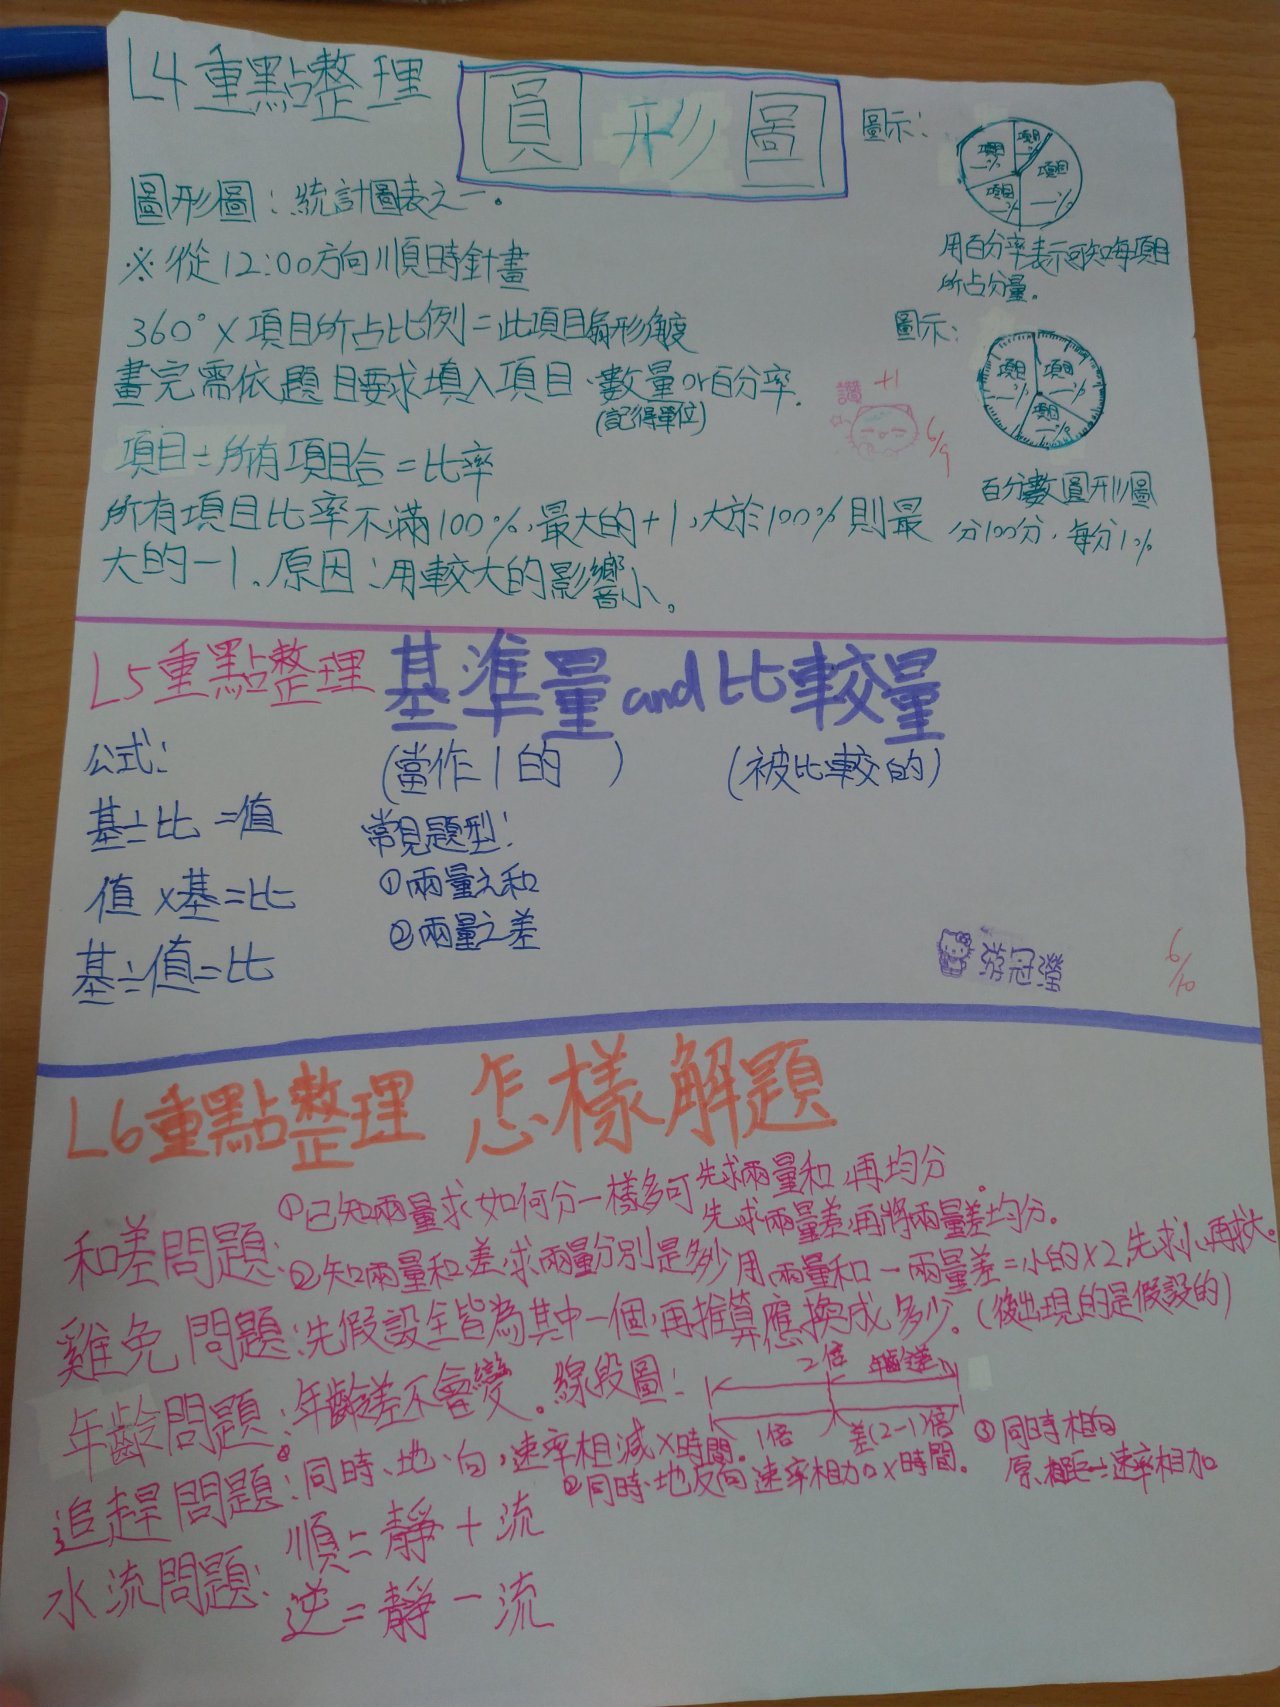 L4重點整理
圓形圖
圖示:
項目
項目 __%
項目 __%
項目 __%
用百分率表示可知每項目
所占分量。
圓形圖:統計圖表之一。
※從12:00方向順時針畫
360°×項目所占比例=此項目扇形角度
畫完需依題目要求填入項目、數量or百分率.
(記得單位)
圖示:
項目 __%
項目 __%
項目 __%
讚 +1
6/9
項目÷所有項目合=比率
百分數圓形圖
分100分,每分1%
所有項目比率不滿100%,最大的+1,大於100%則最
大的-1。原因:用較大的影響小。
L5重點整理 基準量and比較量
公式: (當作1的 ) (被比較的)
基÷比=值
常見題型:
值×基=比
①兩量之和
②兩量之差
基÷值=比
游冠瀅
6/10
L6重點整理 怎樣解題
和差問題:
①已知兩量求如何分一樣多可先求兩量和,再均分。
先求兩量差,再將兩量差均分。
②知兩量和、差,求兩量分別是多少用兩量和-兩量差=小的×2,先求小,再求大。
雞兔問題:先假設全皆為其中一個,再推算應換成多少。(後出現的是假設的)
年齡問題:年齡差不會變。線段圖:
2倍 年齡差
1倍 差(2-1)倍
追趕問題:
①同時、地、向,速率相減×時間。
②同時、地反向速率相加×時間。
③同時相向
原相距÷速率相加
水流問題:順=靜+流
逆=靜-流